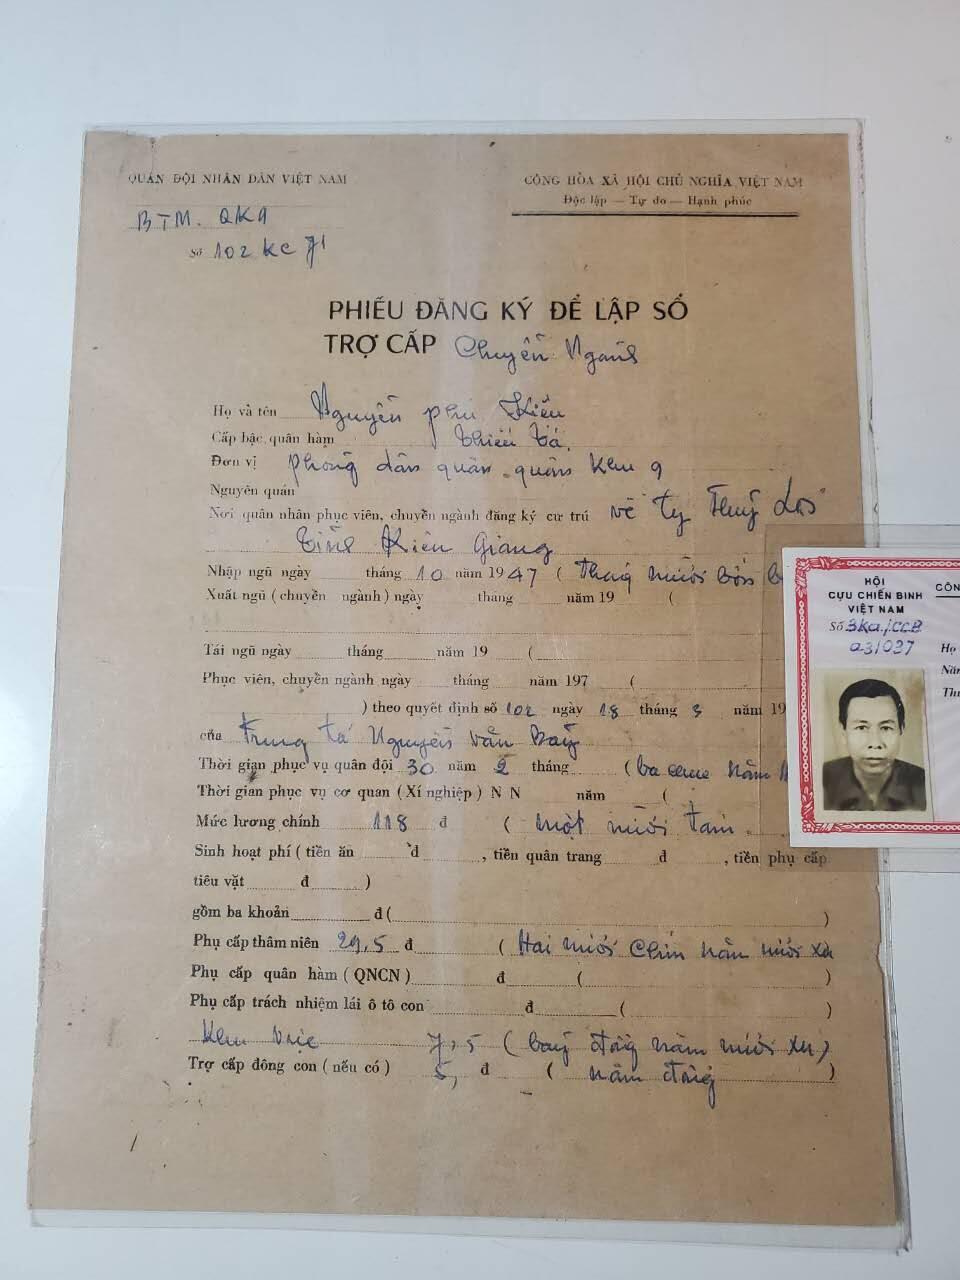 QUÂN ĐỘI NHÂN DÂN VIỆT NAM
BTM. QK9
Số 102 KC 71
CỘNG HÒA XÃ HỘI CHỦ NGHĨA VIỆT NAM
Độc lập — Tự do — Hạnh phúc
PHIẾU ĐĂNG KÝ ĐỂ LẬP SỔ
TRỢ CẤP Chuyển Ngành
Họ và tên Nguyễn phú Kiều
Cấp bậc, quân hàm thiếu tá
Đơn vị phòng dân quân quân khu 9
Nguyên quán
Nơi quân nhân phục viên, chuyển ngành đăng ký cư trú về ty Thuỷ Lợi
tỉnh Kiên Giang
Nhập ngũ ngày tháng 10 năm 1947 ( Tháng mười bốn b
Xuất ngũ ( chuyển ngành ) ngày tháng năm 19 (
Tái ngũ ngày tháng năm 19 (
Phục viên, chuyển ngành ngày tháng năm 197 (
) theo quyết định số 102 ngày 18 tháng 3 năm 19
của Trung tá Nguyễn văn Bảy
Thời gian phục vụ quân đội 30 năm 2 tháng (ba chục năm
Thời gian phục vụ cơ quan ( Xí nghiệp ) N N năm (
Mức lương chính 118 đ ( một mười tám
Sinh hoạt phí ( tiền ăn đ , tiền quân trang đ , tiền phụ cấp
tiêu vặt đ )
gồm ba khoản đ ( )
Phụ cấp thâm niên 29,5 đ ( Hai mươi Chín năm mươi xu
Phụ cấp quân hàm ( QNCN ) đ ( )
Phụ cấp trách nhiệm lái ô tô con đ ( )
Khu vực 7,5 ( bảy đồng năm mươi xu )
Trợ cấp đông con ( nếu có ) 5, đ ( năm đồng )
HỘI
CỰU CHIẾN BINH
VIỆT NAM
Số 3Ka/CCB
031037
CÔN
Họ
Năm
Thu